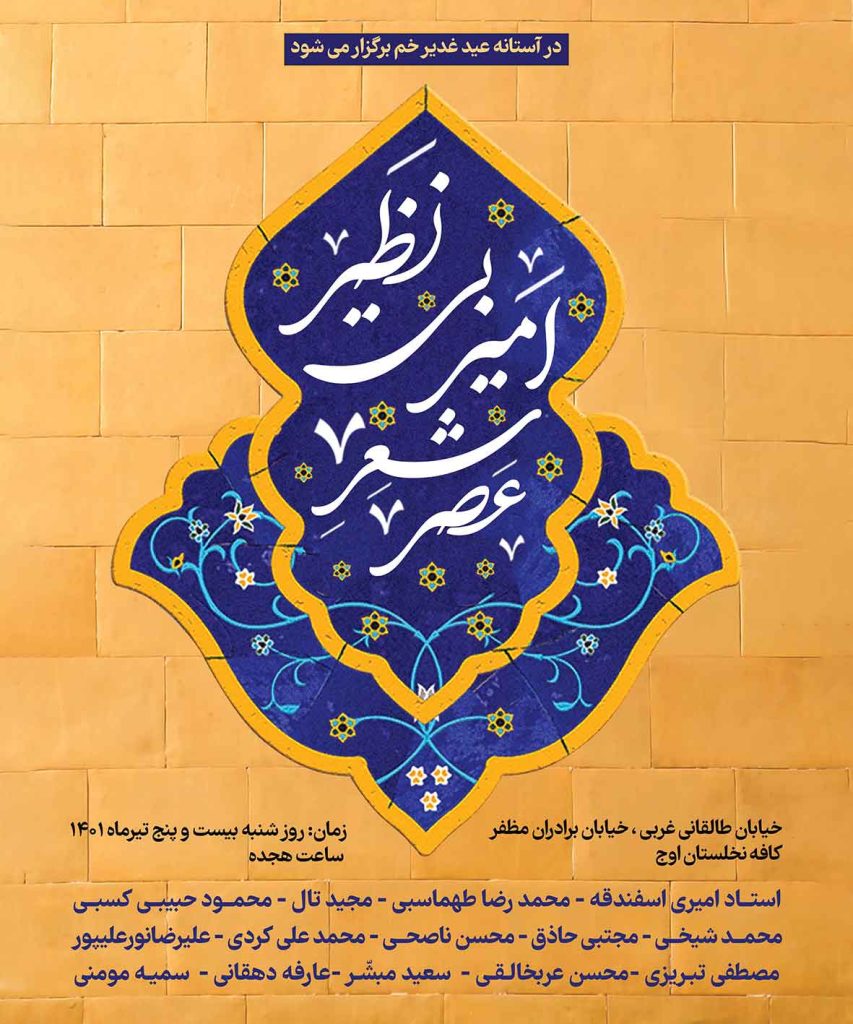 در آستانه عید غدیر خم برگزار می شود
امیر بی نظیر
عصر شعر
خیابان طالقانی غربی ، خیابان برادران مظفر
کافه نخلستان اوج
زمان: روز شنبه بیست و پنج تیرماه ۱۴۰۱
ساعت هجده
استاد امیری اسفندقه - محمد رضا طهماسبی - مجید تال - محمود حبیبی کسبی
محمد شیخی - مجتبی حاذق - محسن ناصحی - محمد علی کردی - علیرضانورعلیپور
مصطفی تبریزی - محسن عربخالقی - سعید مبشّر - عارفه دهقانی - سمیه مومنی